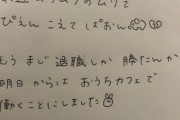 ぴえん こえて ぱおん
もう まじ 退職しか 勝たんか
明日 からは おうちカフェで
働くことにしました